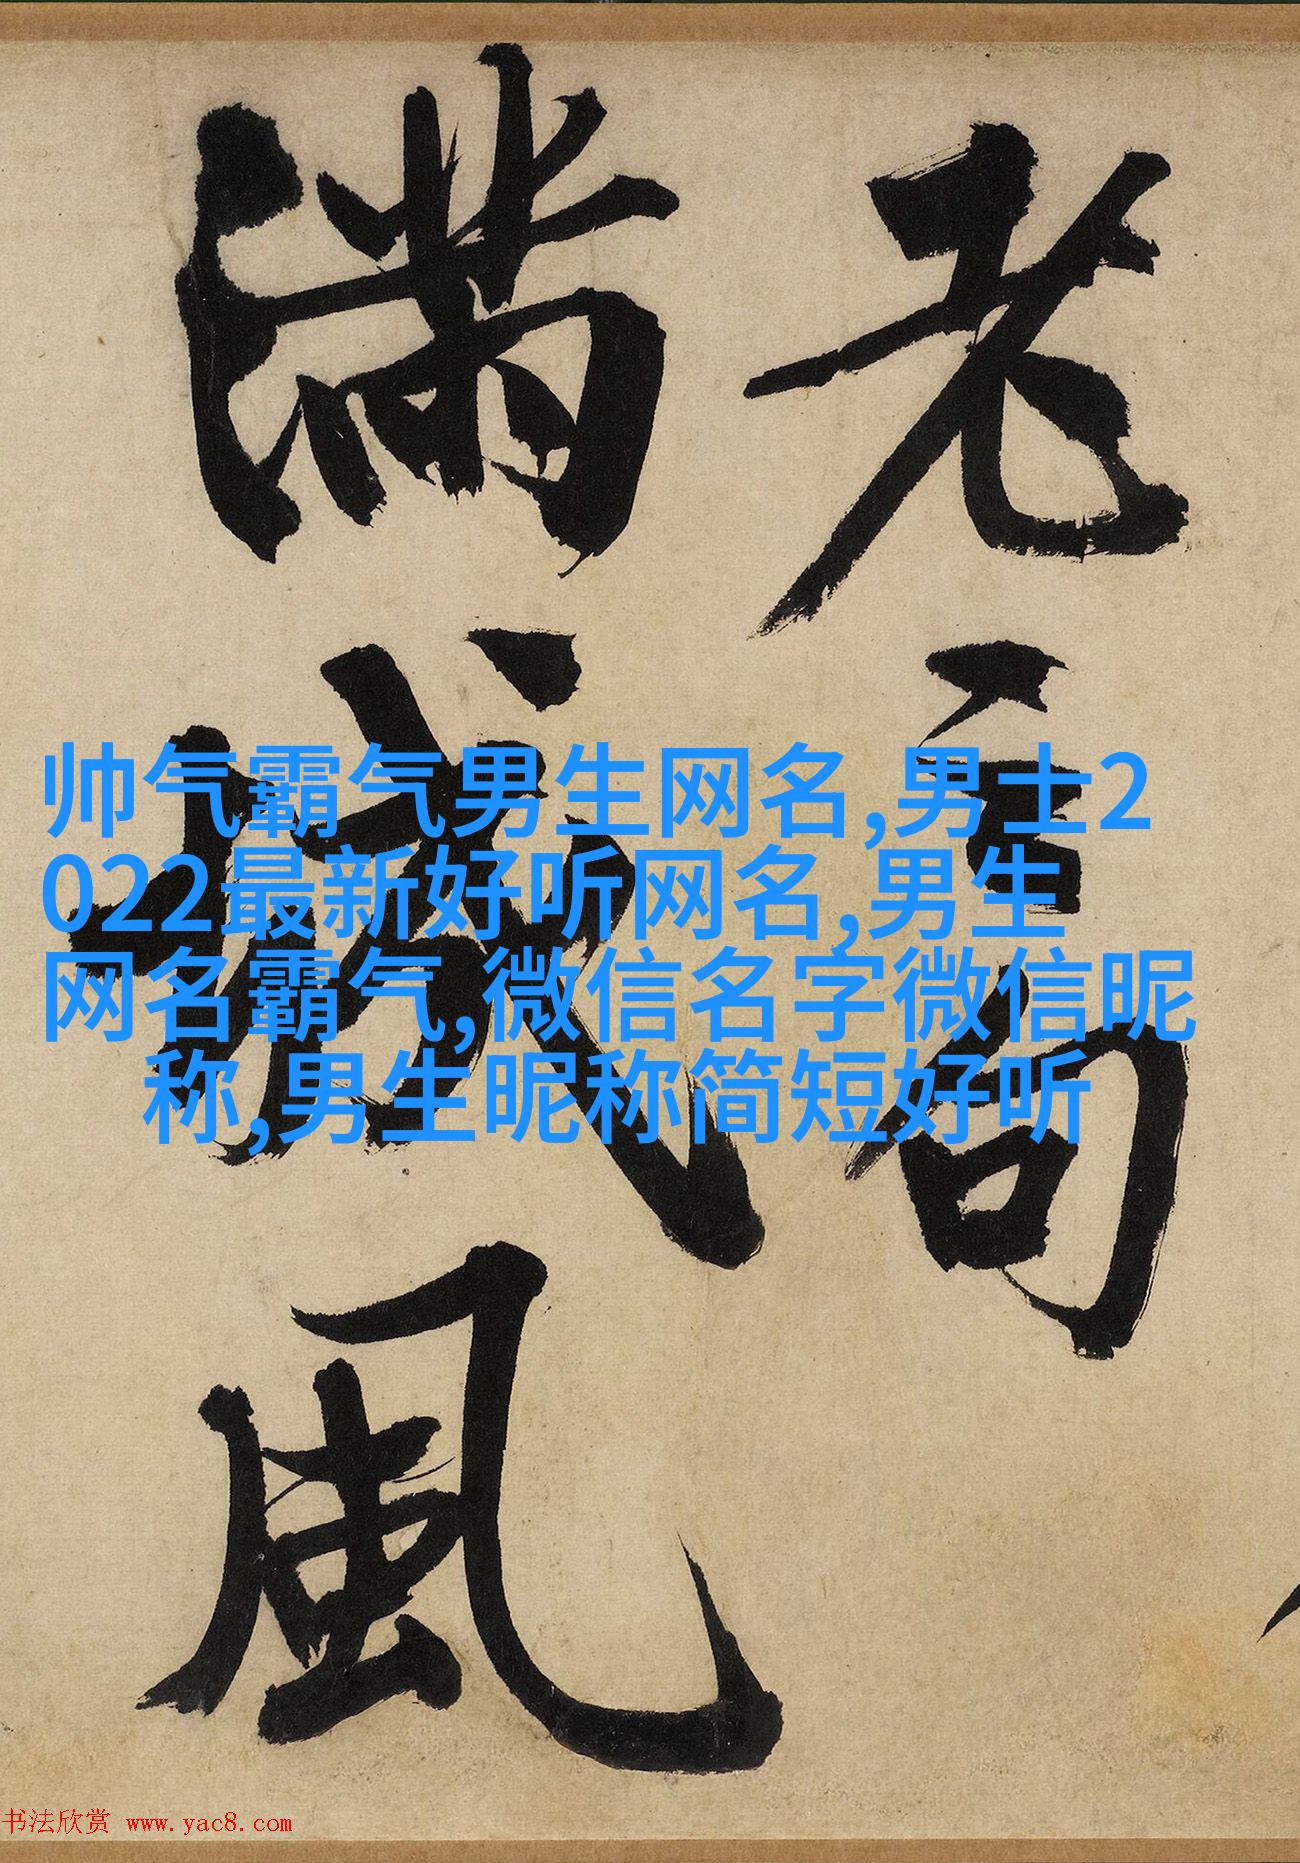 老言句
滿城風
帅气霸气男生网名,男士2
022最新好听网名,男生
网名霸气,微信名字微信昵
称,男生昵称简短好听
书法欣赏 www.yac8.com